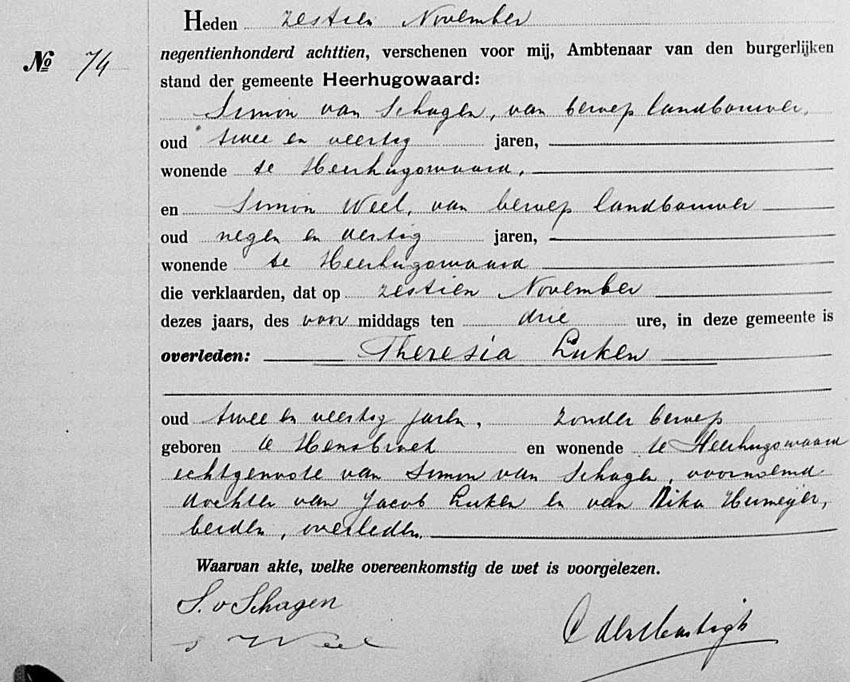 Heden zestien November
No 74
negentienhonderd achttien, verschenen voor mij, Ambtenaar van den burgerlijken
stand der gemeente Heerhugowaard:
Simon van Schagen, van beroep landbouwer,
oud twee en veertig jaren,
wonende te Heerhugowaard,
en Simon Weel, van beroep landbouwer
oud negen en dertig jaren,
wonende te Heerhugowaard
die verklaarden, dat op zestien November
dezes jaars, des voor middags ten drie ure, in deze gemeente is
overleden: Theresia Luken
oud twee en veertig jaren, zonder beroep
geboren te Hensbroek en wonende te Heerhugowaard
echtgenoote van Simon van Schagen, voornoemd
dochter van Jacob Luken en van
beiden, overleden,
Waarvan akte, welke overeenkomstig de wet is voorgelezen.
S. v Schagen
S Weel